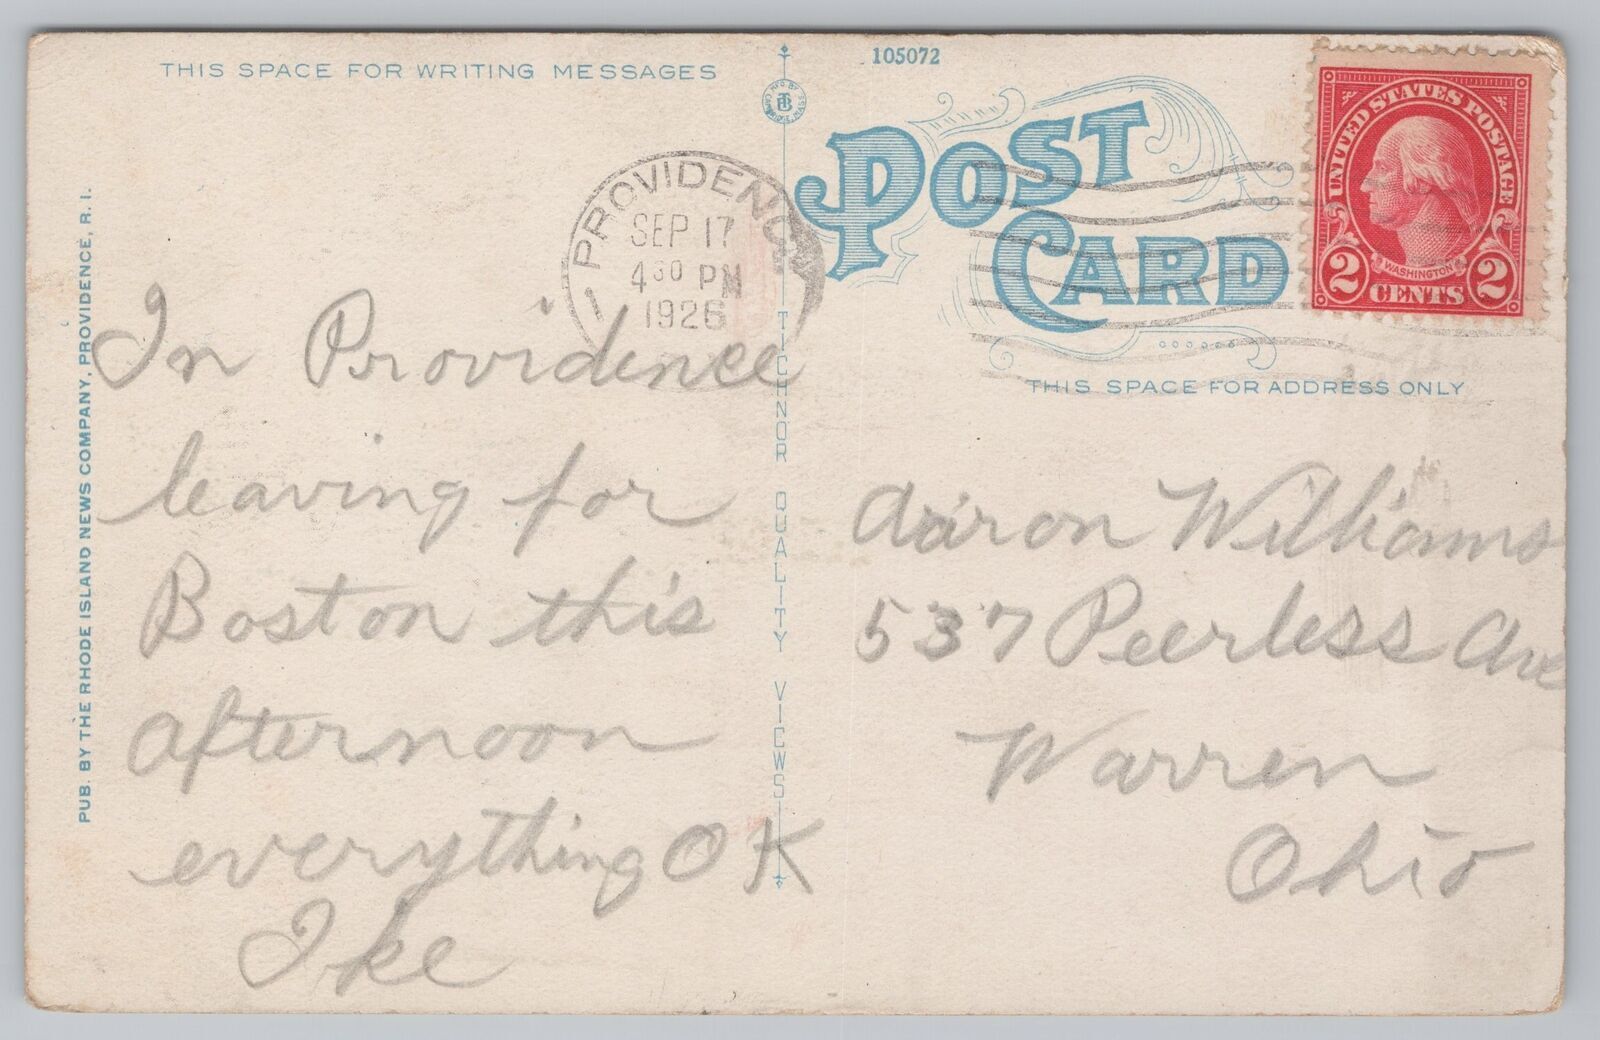 THIS SPACE FOR WRITING MESSAGES
105072
MF'D BY
TB
CAMBRIDGE, MASS.
POST
CARD
UNITED STATES POSTAGE
WASHINGTON
2 CENTS 2
PROVIDENCE
SEP 17
4 30 PM
1926
1
THIS SPACE FOR ADDRESS ONLY
PUB. BY THE RHODE ISLAND NEWS COMPANY, PROVIDENCE, R. I.
TICHNOR QUALITY VIEWS
In Providence
leaving for
Boston this
afternoon
everything OK
Ike
Aaron Williams
537 Peerless Ave
Warren
Ohio